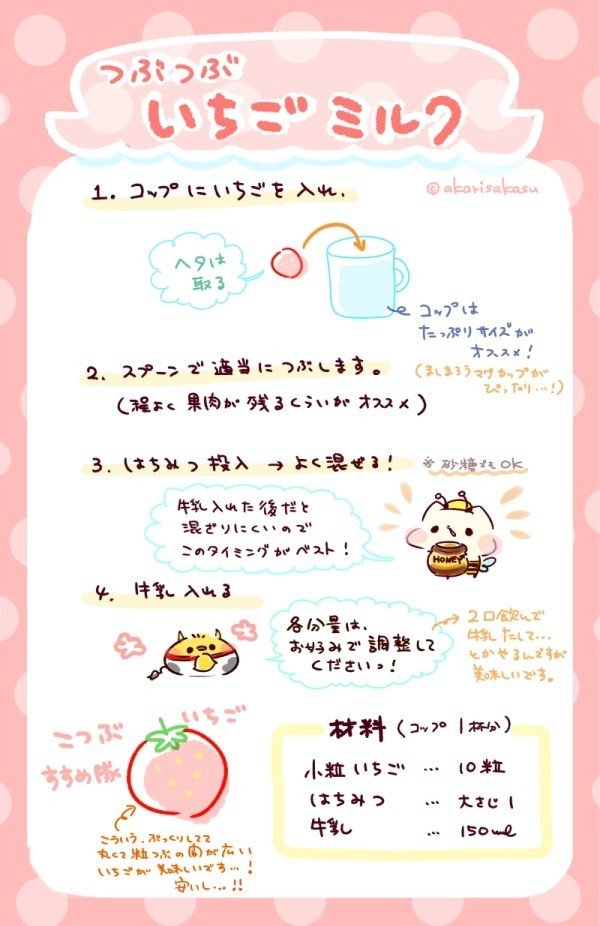 つぶつぶ
いちごミルク
©akarisakasu
1. コップにいちごを入れ、
ヘタは
取る
コップは
たっぷりサイズが
オススメ!
(ましまろうマグカップが
ぴったり…!)
2. スプーンで適当につぶします。
(程よく果肉が残るくらいがオススメ)
3. はちみつ投入 → よく混ぜる!
※砂糖でもOK
牛乳入れた後だと
混ざりにくいので
このタイミングがベスト!
HONEY
4. 牛乳入れる
各分量は、
お好みで調整して
くださいっ!
2口飲んで
牛乳たして…
とかやるんですが
美味しいです。
こつぶ いちご
すすめ隊
こういう、ぷっくりしてて
丸くて粒つぶの間が広い
いちごが美味しいです…!
安いし…!!
材料(コップ1杯分)
小粒いちご … 10粒
はちみつ … 大さじ1
牛乳 … 150ml